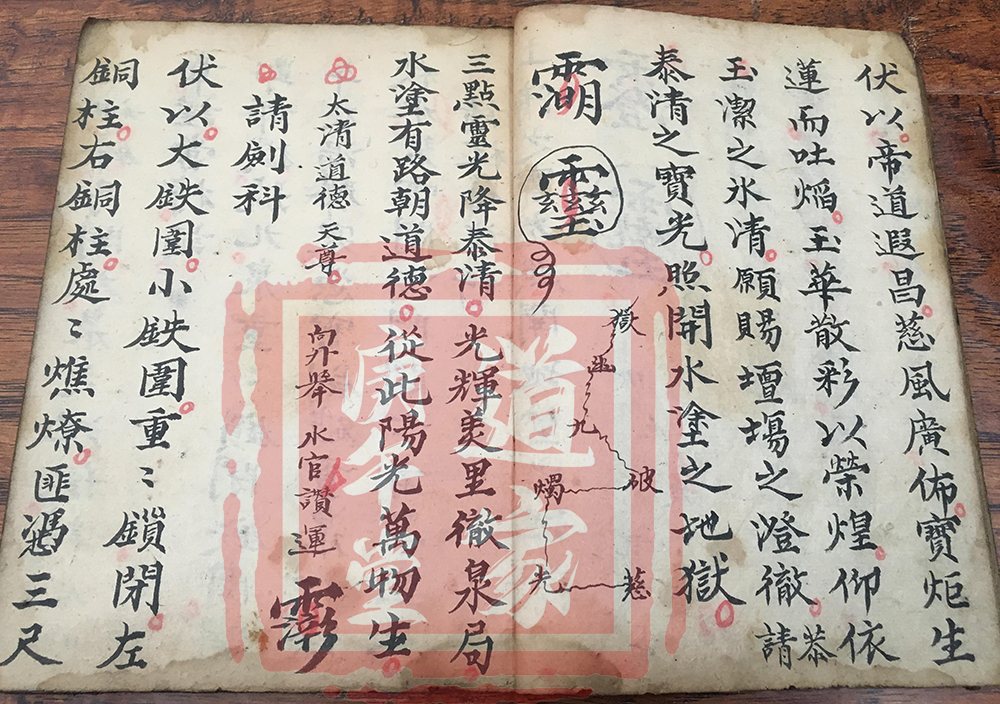 伏以帝道遐昌慈風廣佈寶炬生
蓮而吐焰玉華散彩以荣煌仰依
玉潔之水清願賜壇塲之澄徹恭請
泰清之寶光照開水塗之地獄
獄幽九破燭慈光
三點靈光降泰清光輝美里徹泉局
水塗有路朝道德從此陽光萬物生
太清道德天尊 向外舉 水官讃運
請劍科
伏以大鉄圍小鉄圍重〻鎖閉左
銅柱右銅柱處〻燋燎匪憑三尺
道家
廣華堂